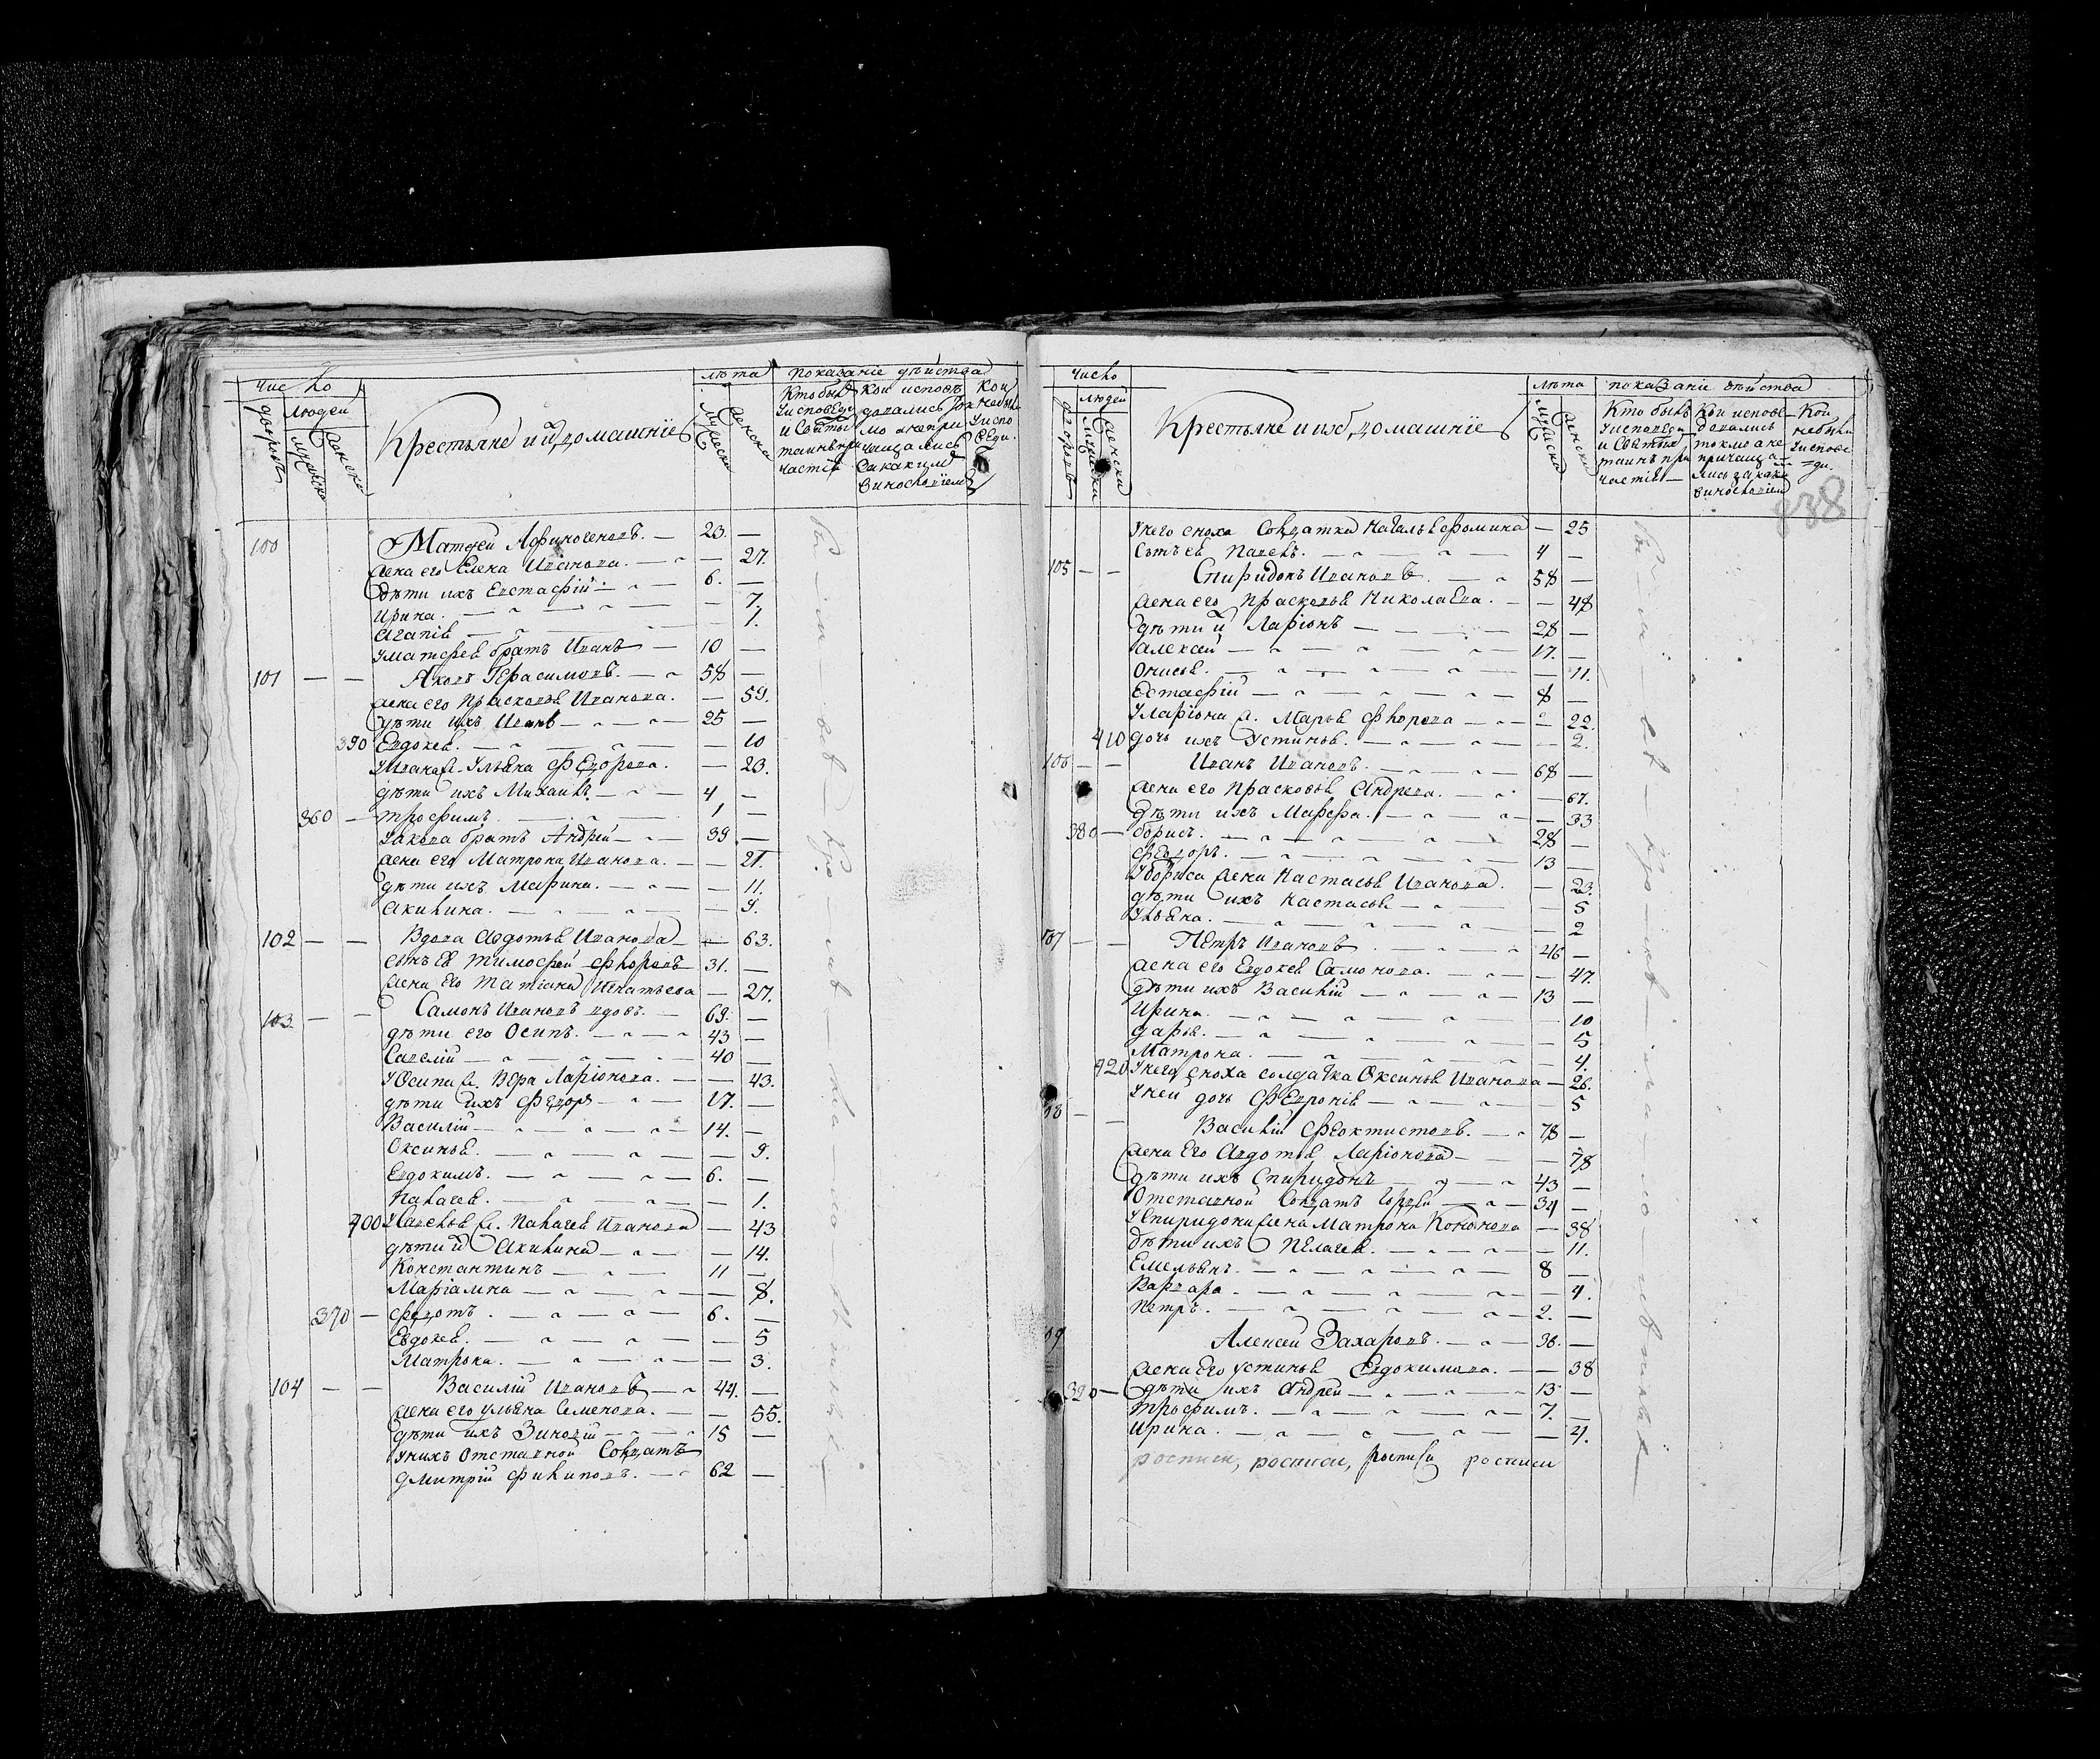 Число
людей
дворовъ
мужеска
женска
Крестьяне и ихъ домашніе
лѣта
мужеска
женска
показаніе дѣйства
Кто былъ у исповѣди и Святыхъ таинъ причастія
Кои исповѣдовались токмо а не причащались за какимъ винословіемъ
Кои не были у исповѣди
100 Матфей Афиногеновъ. — 23. —
жена его Елена Иванова. — 27.
дѣти ихъ Евстафій — 6. —
Ирина. — 7.
Агапія — 1.
У матфея братъ Иванъ — 10 —
101 — — Яковъ Герасимовъ. — 58 —
жена его Прасковья Иванова. — 59.
дѣти ихъ Иванъ — 25 —
390 Евдокея. — 10
У Ивана ж. Ульяна Федорова. — 23.
дѣти ихъ Михаила — 4 —
360 — трофимъ. 1 —
У якова братъ Андрей — 39. —
жена его Матрона Иванова. — 21.
дѣти ихъ Марина. — 11.
Акилина. — 9.
102 — — Вдова Авдотья Иванова — 63.
сынъ ея Тимофей Флоровъ 31. —
жена его Татіана Игнатьева — 27.
103 — — Самонъ Ивановъ вдовъ. — 69. —
дѣти его Осипъ. — 43 —
Савелій — 40 —
У Осипа ж. Вера Ларіонова. — 43.
дѣти ихъ Федоръ — 17. —
Василій — 14. —
Оксинья. — 9.
Евдокимъ. — 6. —
Палагея. — 1.
400 У Савелья ж. Палагея Иванова — 43
дѣти ихъ Акилина — 14.
Константинъ — 11 —
Маріамна — 8.
370 — Федотъ. — 6. —
Евдокея. — 5
Матрона. — 3.
104 — — Василій Ивановъ — 44. —
жена его ульяна Семенова. — 55.
дѣти ихъ Зиновій — 15 —
У нихъ Отставной Солдатъ
дмитрій Филиповъ. — 62 —
Число
людей
дворовъ
мужеска
женска
Крестьяне и ихъ домашніе
лѣта
мужеска
женска
показаніе дѣйства
Кто былъ у исповѣди и Святыхъ таинъ причастія —
Кои исповедовались токмо а не причащались за каки винословіемъ
Кои не были у исповѣди.
238
У него сноха Солдатка Наталья Фомина — 25
Сынъ ея Павелъ. — 4 —
105 — — Спиридонъ Ивановъ. — 58 —
жена его Прасковья Николаева. — 48
дѣти ихъ Ларіонъ — 28 —
Алексей — 17. —
Онисья. — 11.
Естафій — 8 —
У ларіона ж. Марья Флорова — 22.
410 дочь ихъ Устинья. — 2.
106 — — Иванъ Ивановъ. — 68 —
жена его Прасковья Андреева. — 67.
Дѣти ихъ Марфа. — 33
380 — борисъ. — 28 —
Федоръ. — 13 —
У бориса жена Настасья Иванова. — 23.
дѣти ихъ Настасья — 5
Ульяна. — 2
107 — — Петръ Ивановъ. — 46 —
жена его Евдокея Самонова. — 47.
дѣти ихъ Василій — 13 —
Ирина. — 10
дарья. — 5
Матрона. — 4.
420 У него сноха солдатка Оксинья Иванова — 26.
У неи дочь Февронія — 5
08 — — Василій Феоктистовъ. — 78 —
жена его Авдотья Ларіонова — 78
дѣти ихъ Спиридонъ — 43 —
Отставной Солдатъ Гордей — 34 —
У Спиридона жена Матрона Кононова — 38
дѣти ихъ Пелагея. — 11.
Емельянъ. — 8 —
Варвара. — 4.
Петръ. — 2. —
09 Алексей Захаровъ. — 38. —
жена его устинья Евдокимова. — 38
390 — дѣти ихъ Андрей — 13 —
трофимъ. — 7. —
Ирина. — 4.
росписи, росписи, росписи росписи